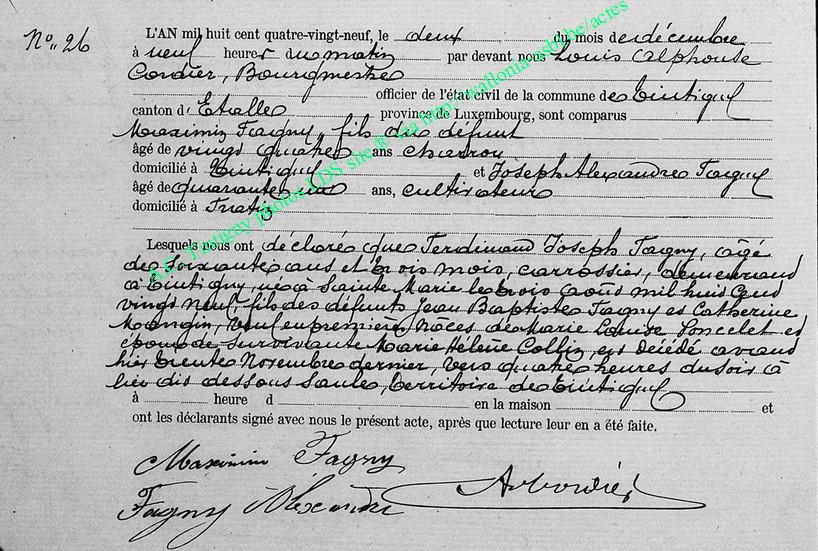 N° 26
L'AN mil huit cent quatre-vingt-neuf, le deux du mois de décembre
à neuf heures du matin par devant nous Louis Alphonse
Cordier, Bourgmestre
officier de l'état civil de la commune de Tintigny
canton d'Etalle province de Luxembourg, sont comparus
Maximin Fagny, fils du défunt
âgé de vingt quatre ans charron
domicilié à Tintigny et Joseph Alexandre Fagny
âgé de quarante ans, cultivateur
domicilié à Fratin
Lesquels nous ont déclaré que Ferdinand Joseph Fagny, âgé
de soixante ans et trois mois, carrossier, demeurand
à Tintigny, né à Sainte Marie le trois août mil huit cent
vingt neuf, fils des défunts Jean Baptiste Fagny et Catherine
Mangin, veuf en premières noces de Marie Louise Poncelet et
époux de survivante Marie Hélène Collin, est décédé avant
hier trente Novembre dernier, vers quatre heures du soir à
lieu dit dessous Saule, territoire de Tintigny
à heure d en la maison et
ont les déclarants signé avec nous le présent acte, après que lecture leur en a été faite.
Maximin Fagny
Fagny Alexandre
A Cordier
A.E. Tintigny photos LDS site ® via http://wallonia-asbl.be/actes